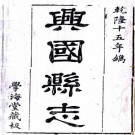 乾隆十五年編
興國縣志
學海堂藏板